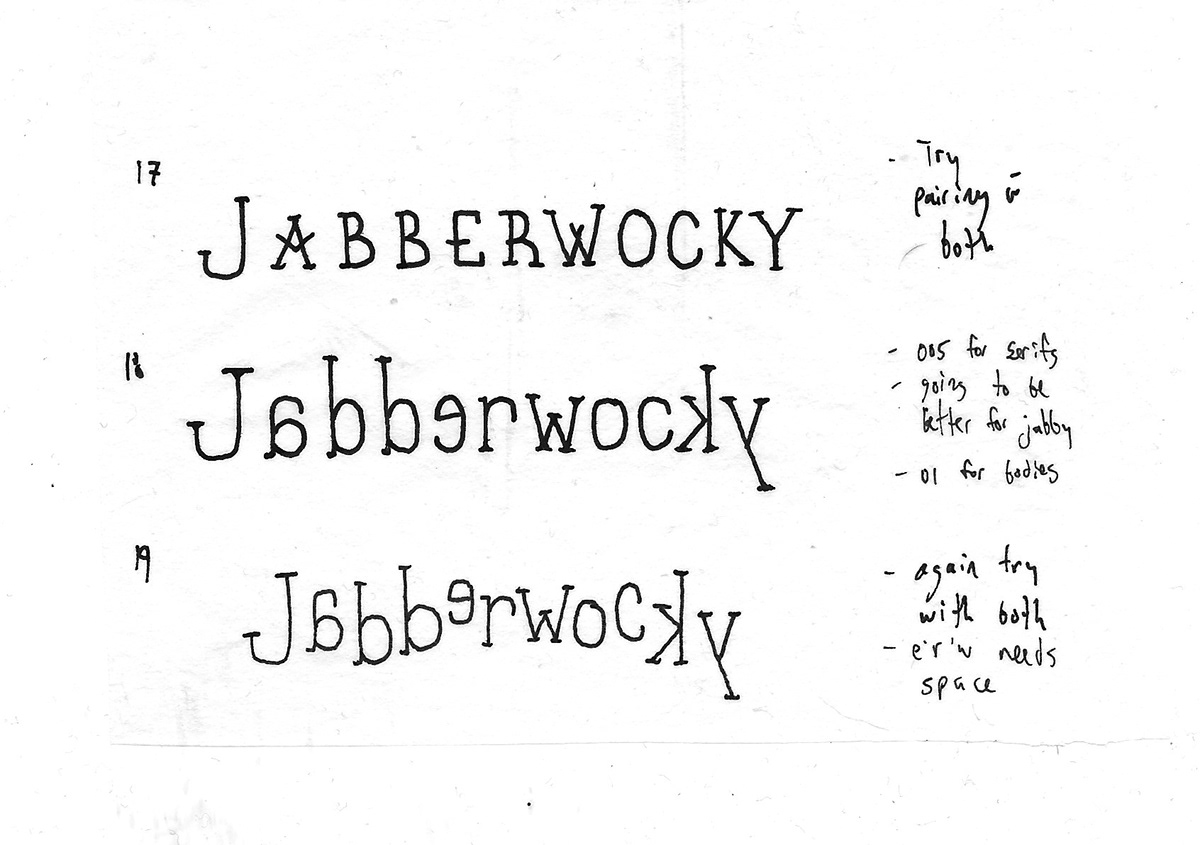 17
JABBERWOCKY
- Try
pairing w
both
18
Jabberwocky
- 005 for serifs
- going to be
better for jabby
- 01 for bodies
19
Jabberwocky
- again try
with both
- e'r'w needs
space